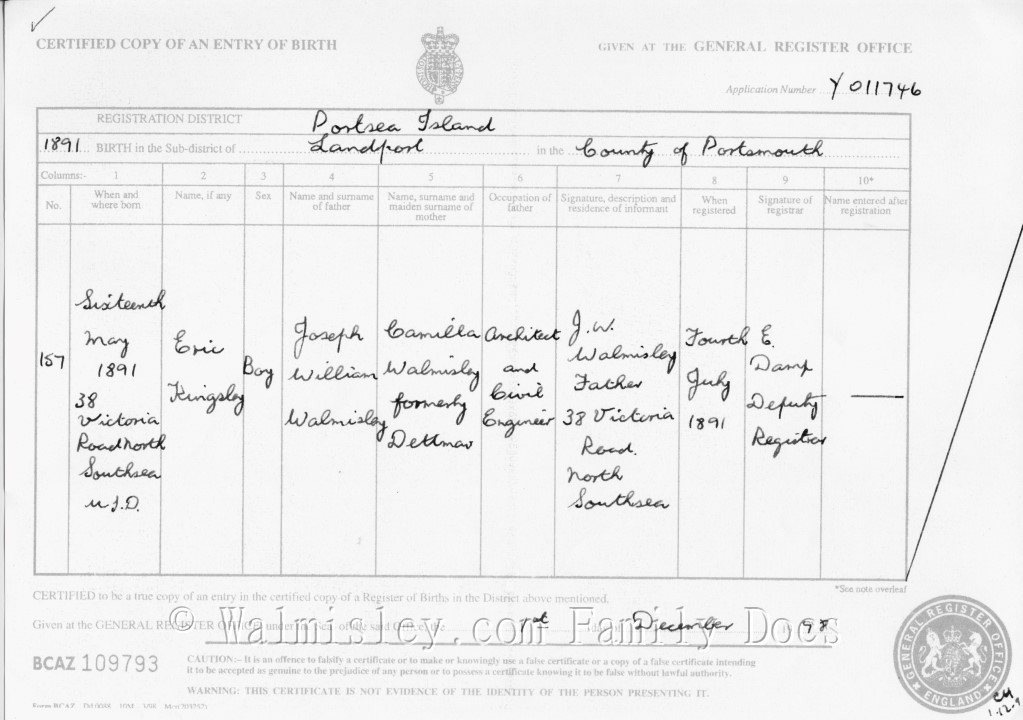 CERTIFIED COPY OF AN ENTRY OF BIRTH
GIVEN AT THE GENERAL REGISTER OFFICE
Application Number Y 011746
REGISTRATION DISTRICT Portsea Island
1891 BIRTH in the Sub-district of Landport in the County of Portsmouth
Columns:- 1 2 3 4 5 6 7 8 9 10*
No.
When and
where born
Name, if any
Sex
Name and surname
of father
Name, surname and
maiden surname of
mother
Occupation of
father
Signature, description and
residence of informant
When
registered
Signature of
registrar
Name entered after
registration
157
Sixteenth
May
1891
38
Victoria
Road North
Southsea
U.S.D.
Eric
Kingsley
Boy
Joseph
William
Walmisley
Camilla
Walmisley
formerly
Dettmar
Architect
and
Civil
Engineer
J.W.
Walmisley
Father
38 Victoria
Road.
North
Southsea
Fourth
July
1891
E.
Damp
Deputy
Registrar
*See note overleaf
CERTIFIED to be a true copy of an entry in the certified copy of a Register of Births in the District above mentioned.
Given at the GENERAL REGISTER OFFICE, under the Seal of the said Office, the 1st day of December 98
© Walmisley.com Family Docs
BCAZ 109793
CAUTION:- It is an offence to falsify a certificate or to make or knowingly use a false certificate or a copy of a false certificate intending
it to be accepted as genuine to the prejudice of any person or to possess a certificate knowing it to be false without lawful authority.
WARNING: THIS CERTIFICATE IS NOT EVIDENCE OF THE IDENTITY OF THE PERSON PRESENTING IT.
Form BCAZ
GENERAL REGISTER OFFICE
ENGLAND